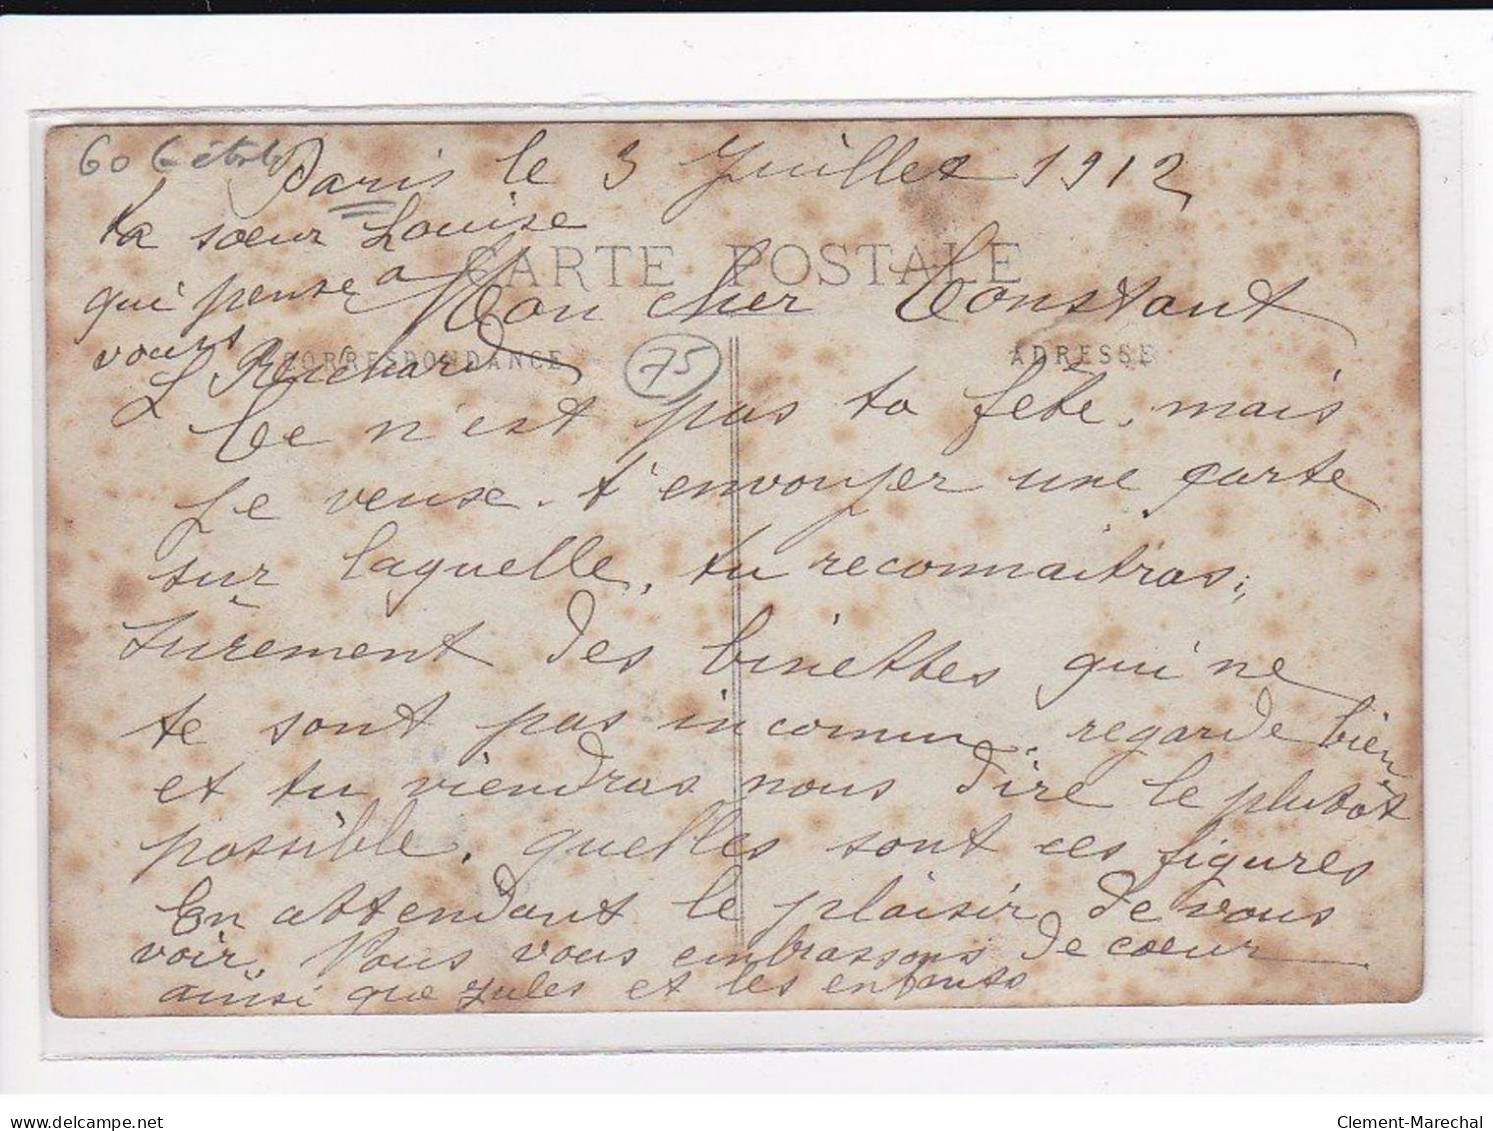 Paris le 3 Juillet 1912
ta soeur Louise
qui pense a
vous
L Reichard
CARTE POSTALE
Mon cher Constant
CORRESPONDANCE
75
ADRESSE
Ce n'est pas ta fête, mais
Je veux t'envoyer une carte
sur laquelle, tu reconnaitras
surement des binettes qui ne
te sont pas inconnu. regarde bien
et tu viendras nous dire le plutôt
possible. quelles sont ces figures
En attendant le plaisir de vous
voir. Nous vous embrassons de coeur
ainsi que Jules et les enfants
delcampe.net
Clement-Marechal